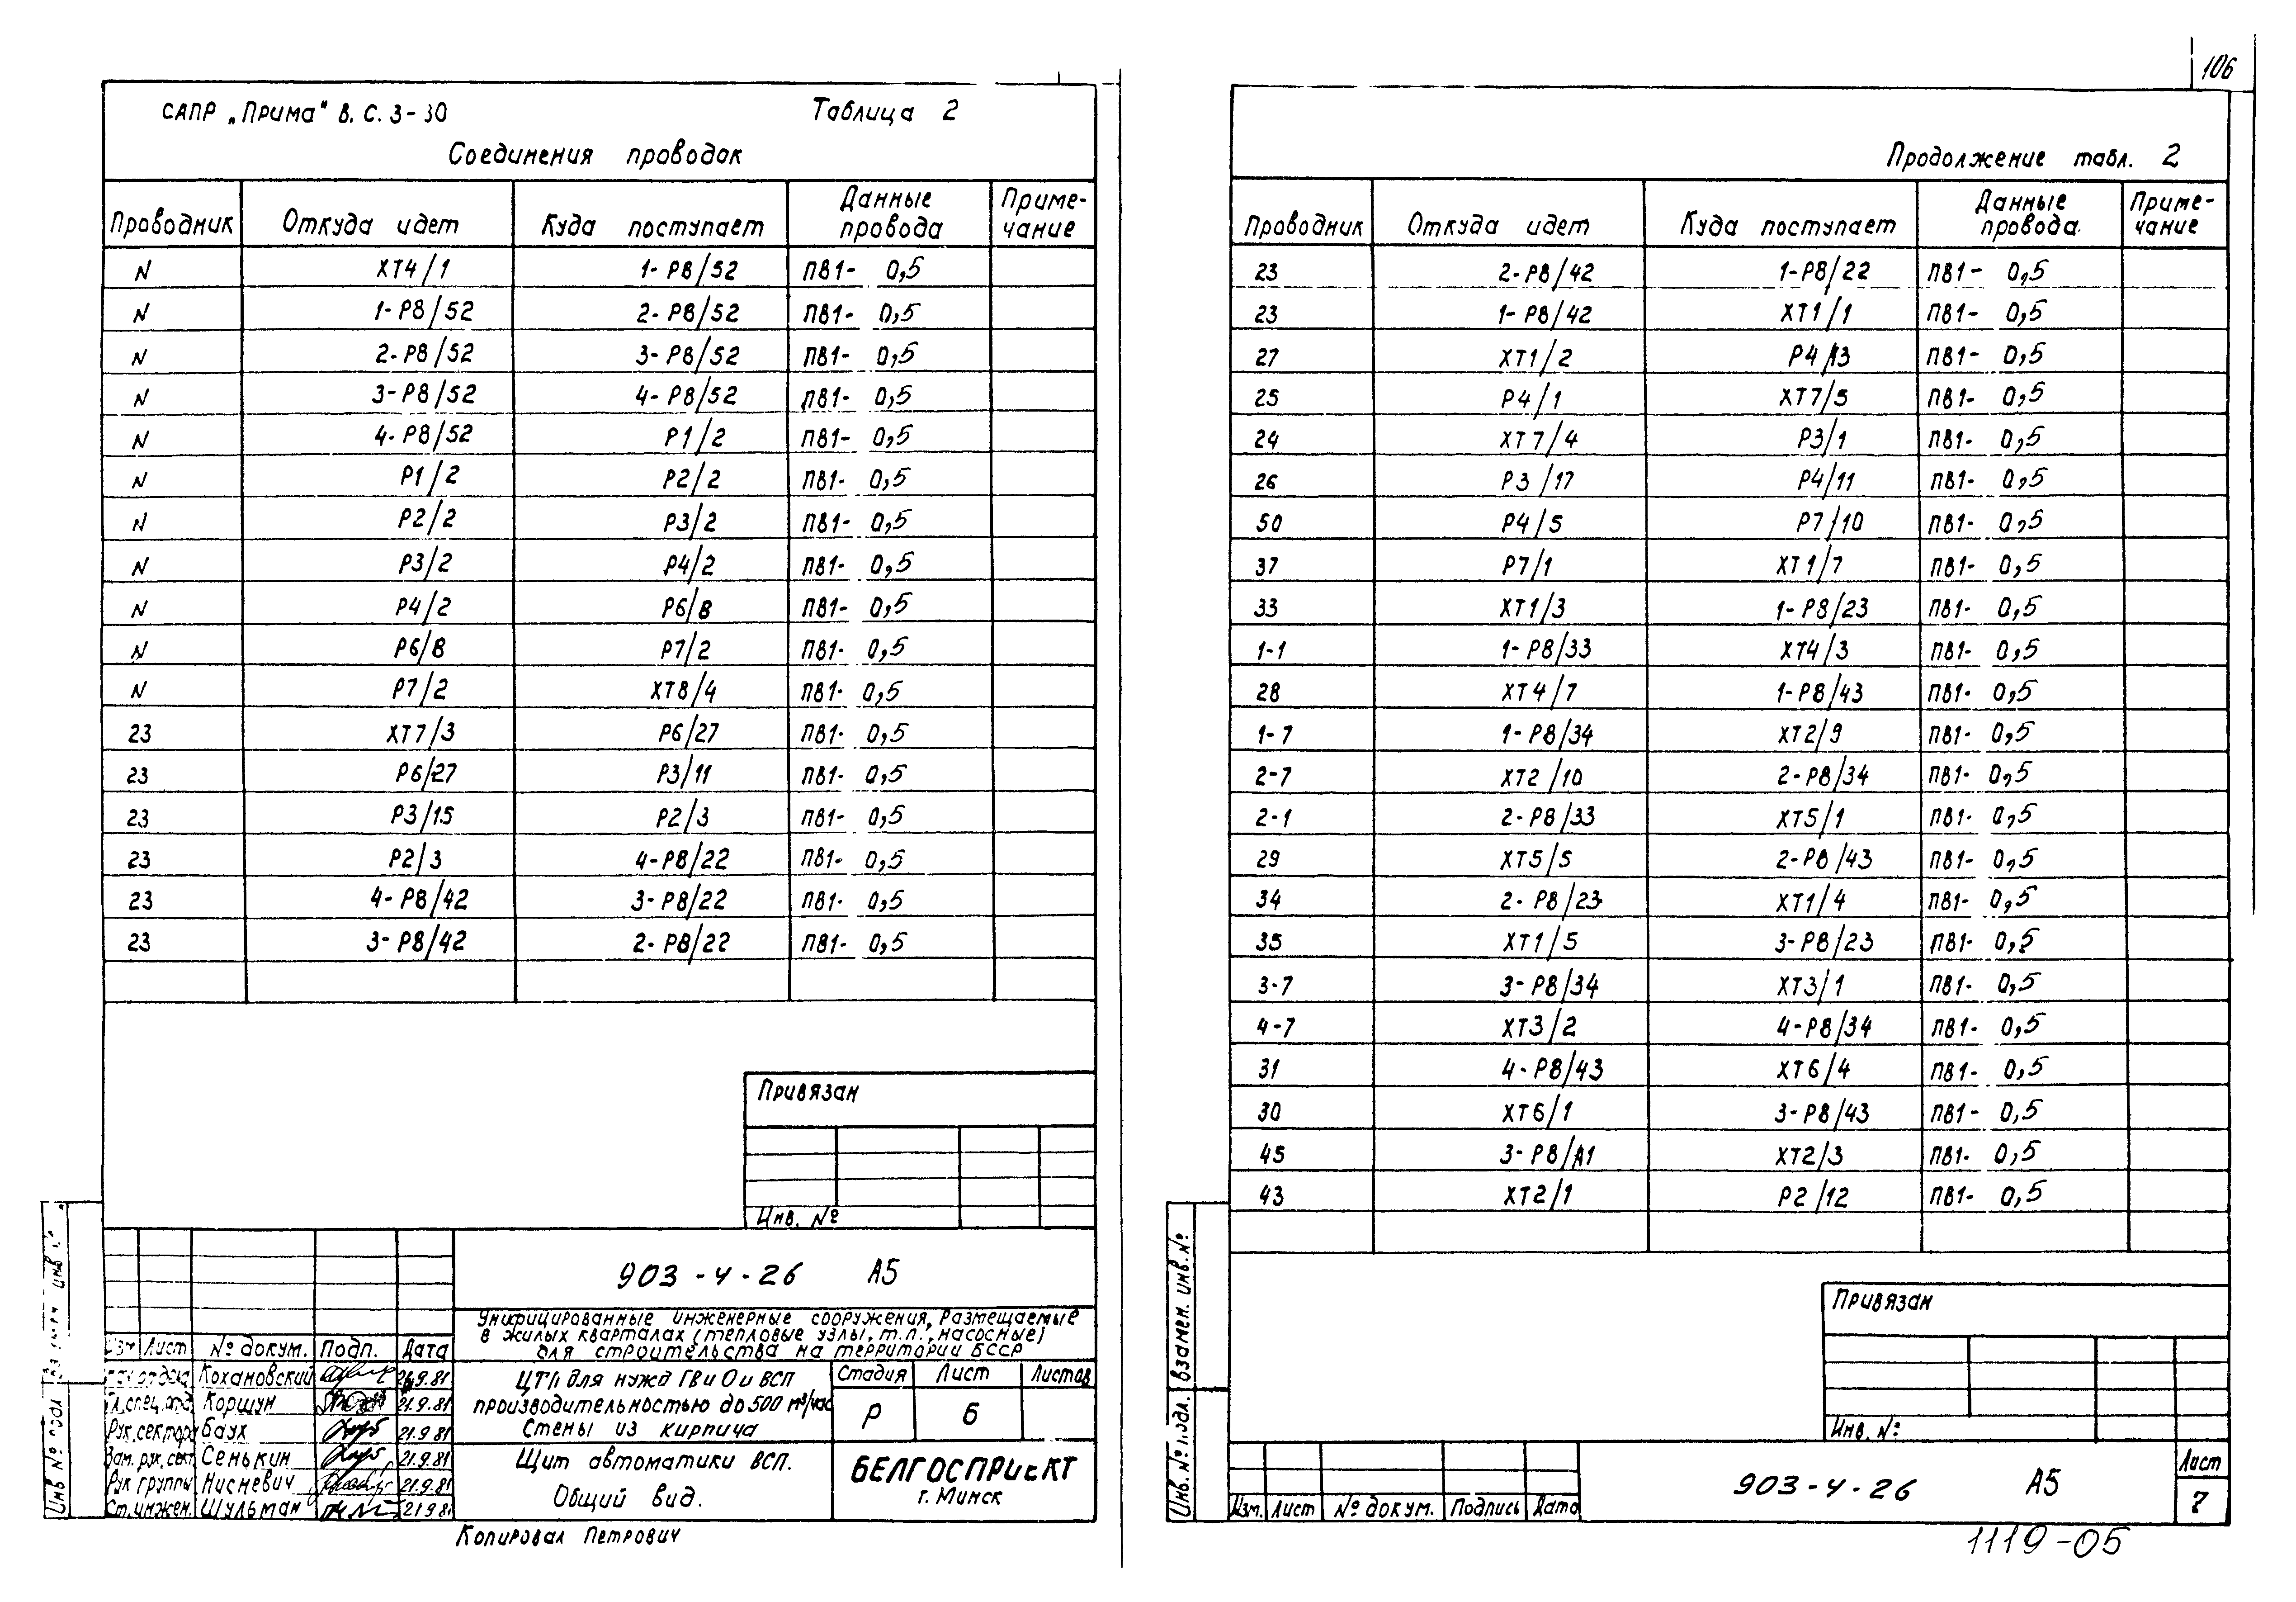 106
САПР „Прима" В. С. 3-30 Таблица 2
Соединения проводок
Проводник Откуда идет Куда поступает Данные провода Приме-чание
N ХТ4/1 1-Р8/52 ПВ1- 0,5
N 1-Р8/52 2-Р8/52 ПВ1- 0,5
N 2-Р8/52 3-Р8/52 ПВ1- 0,5
N 3-Р8/52 4-Р8/52 ПВ1- 0,5
N 4-Р8/52 Р1/2 ПВ1- 0,5
N Р1/2 Р2/2 ПВ1- 0,5
N Р2/2 Р3/2 ПВ1- 0,5
N Р3/2 Р4/2 ПВ1- 0,5
N Р4/2 Р6/8 ПВ1- 0,5
N Р6/8 Р7/2 ПВ1- 0,5
N Р7/2 ХТ8/4 ПВ1- 0,5
23 ХТ7/3 Р6/27 ПВ1- 0,5
23 Р6/27 Р3/11 ПВ1- 0,5
23 Р3/15 Р2/3 ПВ1- 0,5
23 Р2/3 4-Р8/22 ПВ1- 0,5
23 4-Р8/42 3-Р8/22 ПВ1- 0,5
23 3-Р8/42 2-Р8/22 ПВ1- 0,5
Привязан
Инв. №
903-4-26 А5
Унифицированные инженерные сооружения, размещаемые
в жилых кварталах (тепловые узлы, т.п., насосные)
для строительства на территории БССР
Изм Лист № докум. Подп. Дата
Кохановский 21.9.81
Гл.спец.отд. Коршун 21.9.81
Рук.сектора Баух 21.9.81
Зам.рук.сект. Сенькин 21.9.81
Рук группы Нисневич 21.9.81
Ст.инжен. Шульман 21.9.81
ЦТП для нужд ГВ и О и ВСП
производительностью до 500 м³/час
Стены из кирпича
Стадия Лист Листов
Р 6
Щит автоматики ВСП.
Общий вид.
БЕЛГОСПРОЕКТ
г. Минск
Копировал Петрович
Инв № подл
Продолжение табл. 2
Проводник Откуда идет Куда поступает Данные провода Приме-чание
23 2-Р8/42 1-Р8/22 ПВ1- 0,5
23 1-Р8/42 ХТ1/1 ПВ1- 0,5
27 ХТ1/2 Р4/13 ПВ1- 0,5
25 Р4/1 ХТ7/5 ПВ1- 0,5
24 ХТ7/4 Р3/1 ПВ1- 0,5
26 Р3/17 Р4/11 ПВ1- 0,5
50 Р4/5 Р7/10 ПВ1- 0,5
37 Р7/1 ХТ1/7 ПВ1- 0,5
33 ХТ1/3 1-Р8/23 ПВ1- 0,5
1-1 1-Р8/33 ХТ4/3 ПВ1- 0,5
28 ХТ4/7 1-Р8/43 ПВ1- 0,5
1-7 1-Р8/34 ХТ2/9 ПВ1- 0,5
2-7 ХТ2/10 2-Р8/34 ПВ1- 0,5
2-1 2-Р8/33 ХТ5/1 ПВ1- 0,5
29 ХТ5/5 2-Р8/43 ПВ1- 0,5
34 2-Р8/23 ХТ1/4 ПВ1- 0,5
35 ХТ1/5 3-Р8/23 ПВ1- 0,5
3-7 3-Р8/34 ХТ3/1 ПВ1- 0,5
4-7 ХТ3/2 4-Р8/34 ПВ1- 0,5
31 4-Р8/43 ХТ6/4 ПВ1- 0,5
30 ХТ6/1 3-Р8/43 ПВ1- 0,5
45 3-Р8/А1 ХТ2/3 ПВ1- 0,5
43 ХТ2/1 Р2/12 ПВ1- 0,5
Привязан
Инв. №
Изм. Лист № докум. Подпись Дата
903-4-26 А5
Лист
7
Инв. № подл. Взамен. инв. №
1119-05